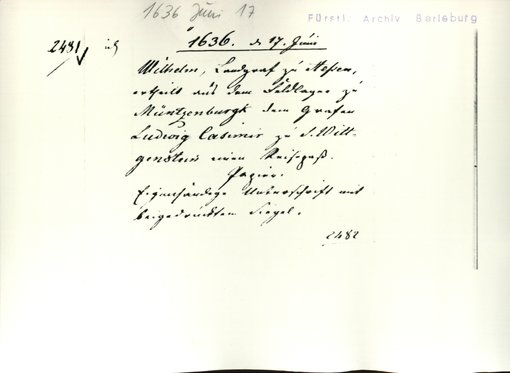 1636 Juni 17
Fürstl. Archiv Berleburg
2481
1636. d 17. Juni
Wilhelm, Landgraf zu Hessen,
ertheilt aus dem Feldlager zu
Müntzenburgk dem Grafen
Ludwig Casimir zu S. Witt-
genstein einen Reisepaß.
Papier.
Eigenhändige Unterschrift mit
beigedrücktem Siegel.
2482